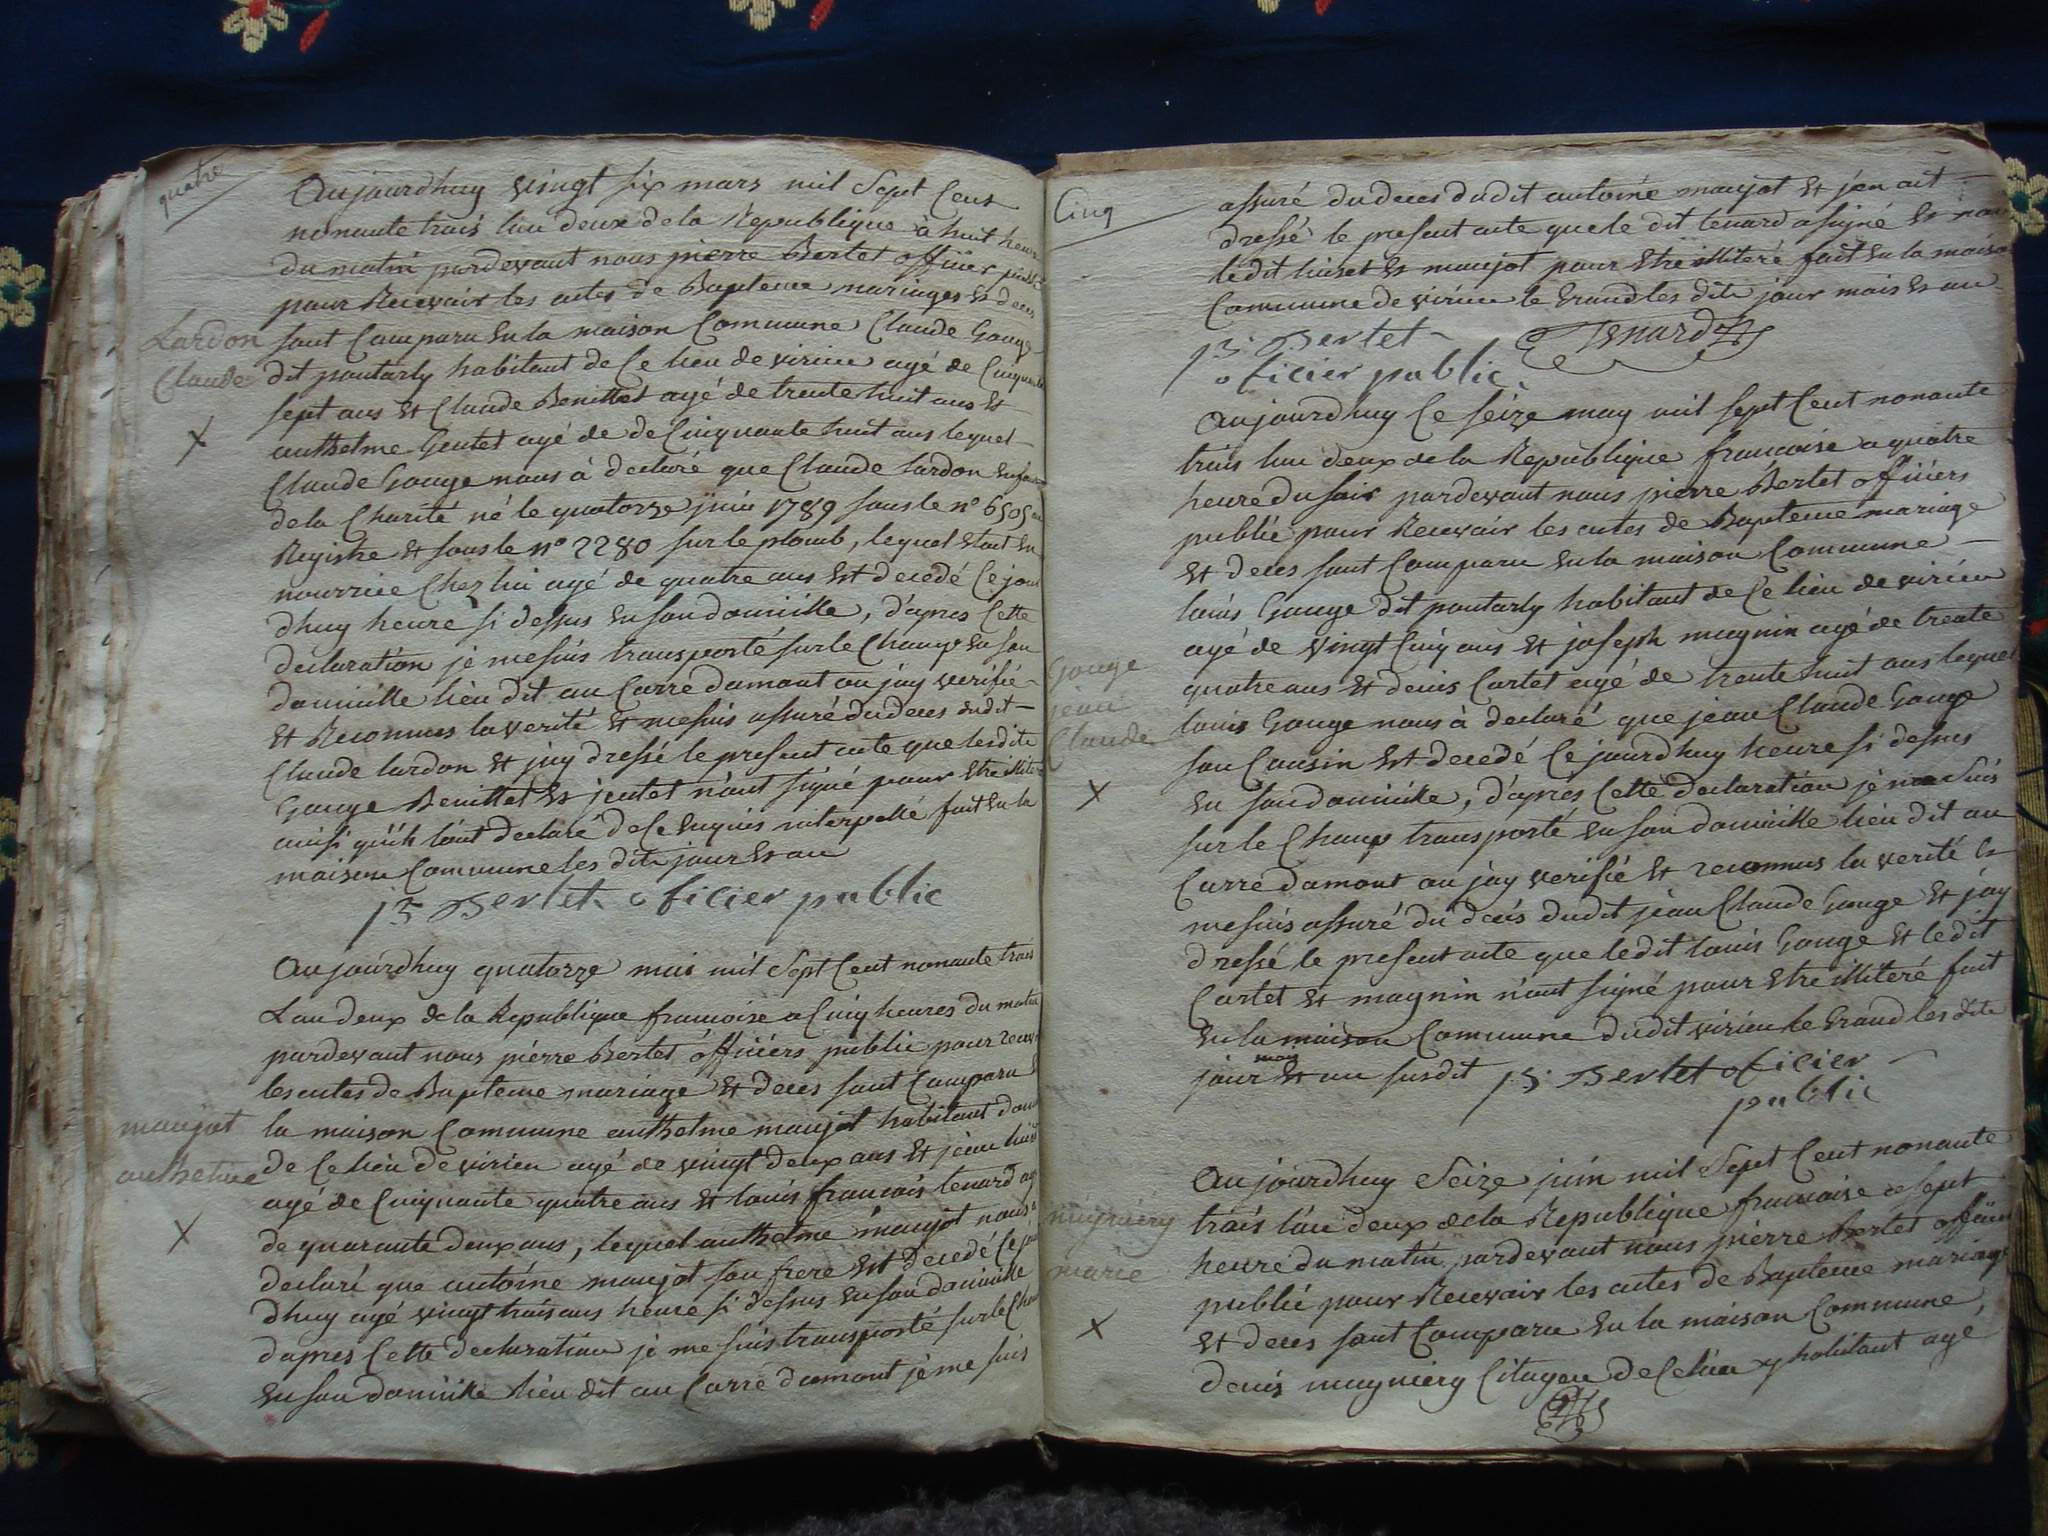 quatre
Aujourdhuy vingt six mars mil sept Cent
nonante trois lan deux de la Republique à huit heure
du matin pardevant nous pierre Bertet officier public
pour Recevoir les actes de Bapteme mariages et deces
Lardon
Claude
sont Comparu en la maison Commune Claude Gouge
dit pontarly habitant de Ce lieu de virieu agé de Cinquante
sept ans et Claude Benittet agé de trente huit ans et
anthelme Gentet agé de de Cinquante huit ans lequel
Claude Gouge nous à declaré que Claude lardon enfant
de la Charité né le quatorze juin 1789 sous le n° 6505 au
Registre et sous le n° 2280 sur le plomb, lequel etoit en
nourrice Chez lui agé de quatre ans est decedé Ce jour
dhuy heure si dessus en son domicille, d'apres Cette
declaration je me suis transporté sur le Champ en son
domicille lieu dit au Carre damont ou jay verifié
et Reconnus la verité et me suis assuré du deces dudit
Claude lardon et jay dressé le present acte que lesdits
Gouge Benittet et jentet n'ont signé pour etre illiteré
ainsi qu'ils l'ont declaré de Ce enquis interpellé fait en la
maison Commune les dits jour et an
pre Bertet oficier public
Aujourdhuy quatorze mai mil Sept Cent nonante trois
Lan deux de la Republique francoise a Cinq heures du matin
pardevant nous pierre Bertet officiers public pour recevoir
les actes de Bapteme mariage et deces sont Comparu en
maujot
anthelme
la maison Commune anthelme maujot habitant
de Ce lieu de virieu agé de vingt deux ans et jean luiset
agé de Cinquante quatre ans et louis francois tenard agé
de quarante deux ans, lequel anthelme maujot nous a
declaré que antoine maujot son frere est decedé Ce jour
dhuy agé vingt trois ans heure si dessus en son domicille
dapres Cette declaration je me suis transporté sur le Champ
en son domicille lieu dit au Carré damont je me suis
Cinq
assuré du deces dudit antoine maujot et j'en ait
dressé le present acte que le dit tenard a signé et non
ledit luiset et maujot pour etre illiteré fait en la maison
Commune de virieu le Grand les dits jour mois et an
pre Bertet
oficier public
Tenard
Aujourdhuy Ce seize may mil sept Cent nonante
trois lan deux de la Republique francoise a quatre
heure du soir pardevant nous pierre Bertet officiers
public pour Recevoir les actes de Bapteme mariage
et deces sont Comparu en la maison Commune
louis Gouge dit pontarly habitant de Ce lieu de virieu
agé de vingt Cinq ans et joseph magnin agé de trente
Gouge
jean
Claude
quatre ans et denis Cartet agé de trente huit ans lequel
louis Gouge nous à declaré que jean Claude Gouge
son Cousin est decedé Ce jourdhuy heure si dessus
en son domicille, d'apres Cette declaration je me suis
sur le Champ transporté en son domicille lieu dit au
Carré damont ou jay verifié et reconnus la verité et
me suis assuré du deces dudit jean Claude Gouge et jay
dressé le present acte que ledit louis Gouge et ledit
Cartet et magnin n'ont signé pour etre illiteré fait
en la maison Commune dudit virieu le Grand les dits
jour mois et an susdit pre Bertet oficier
public
Aujourdhuy Seize juin mil Sept Cent nonante
trois l'an deux de la Republique francoise a sept
marie
heure du matin pardevant nous pierre Bertet officier
public pour Recevoir les actes de Bapteme mariage
et deces sont Comparu en la maison Commune,
denis magniery Citoyen de Ce lieu y habitant agé